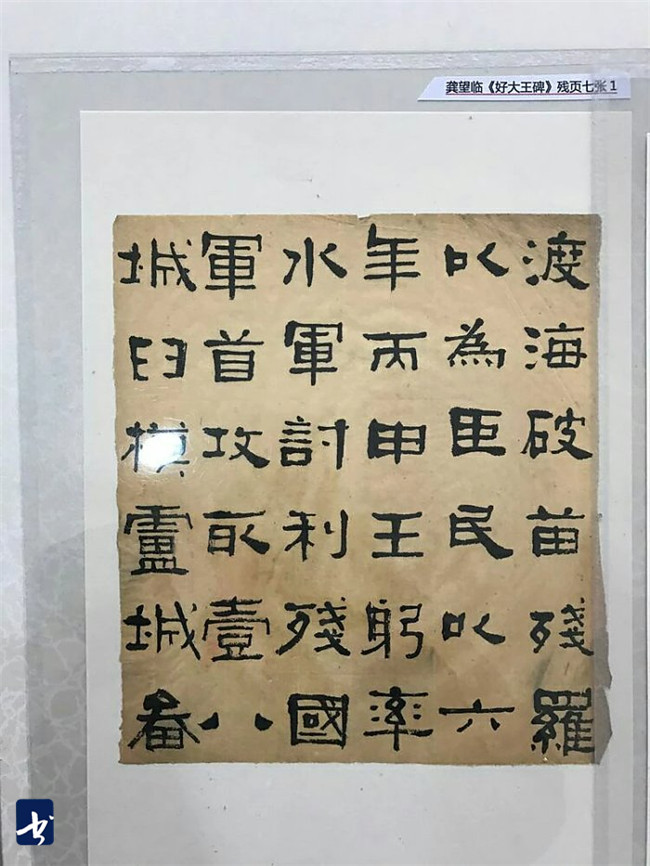 龚望临《好大王碑》残页七张 1
渡海破苗殘羅
以為臣民以六
年丙申王躬率
水軍討利殘國
軍首攻取壹八
城臼模盧城